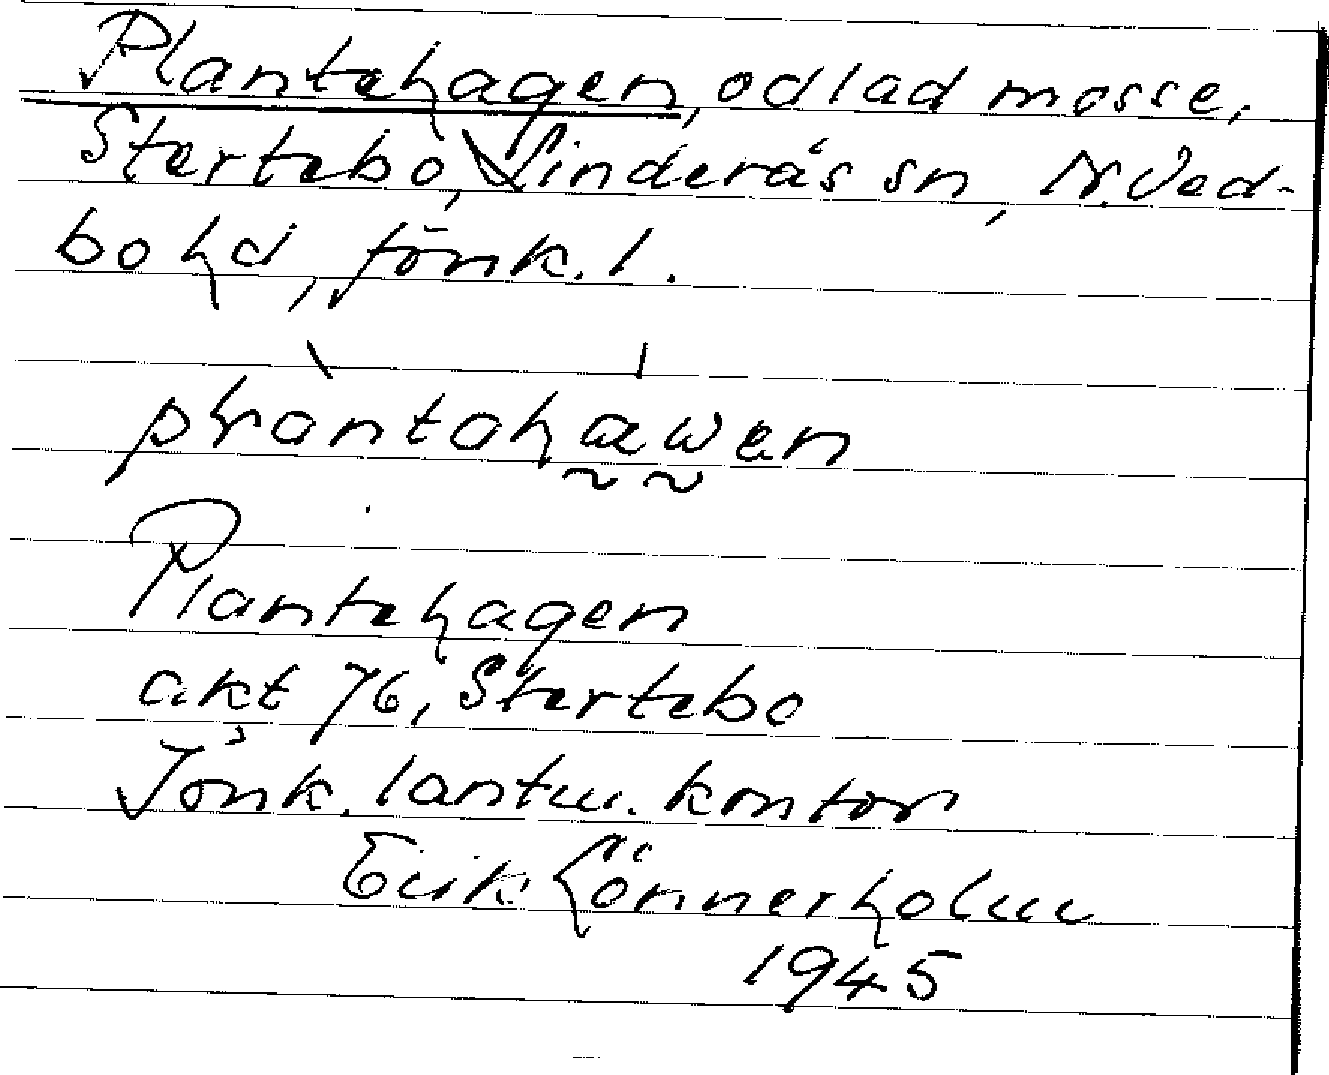 Plantehagen, odlad mosse,
Stertebo, Linderås sn, N. Ved-
bo hd, Jönk. l.
plantahawen
Plantehagen
akt 76, Stertebo
Jönk. lantm. kontor
Erik Lönnerholm
1945